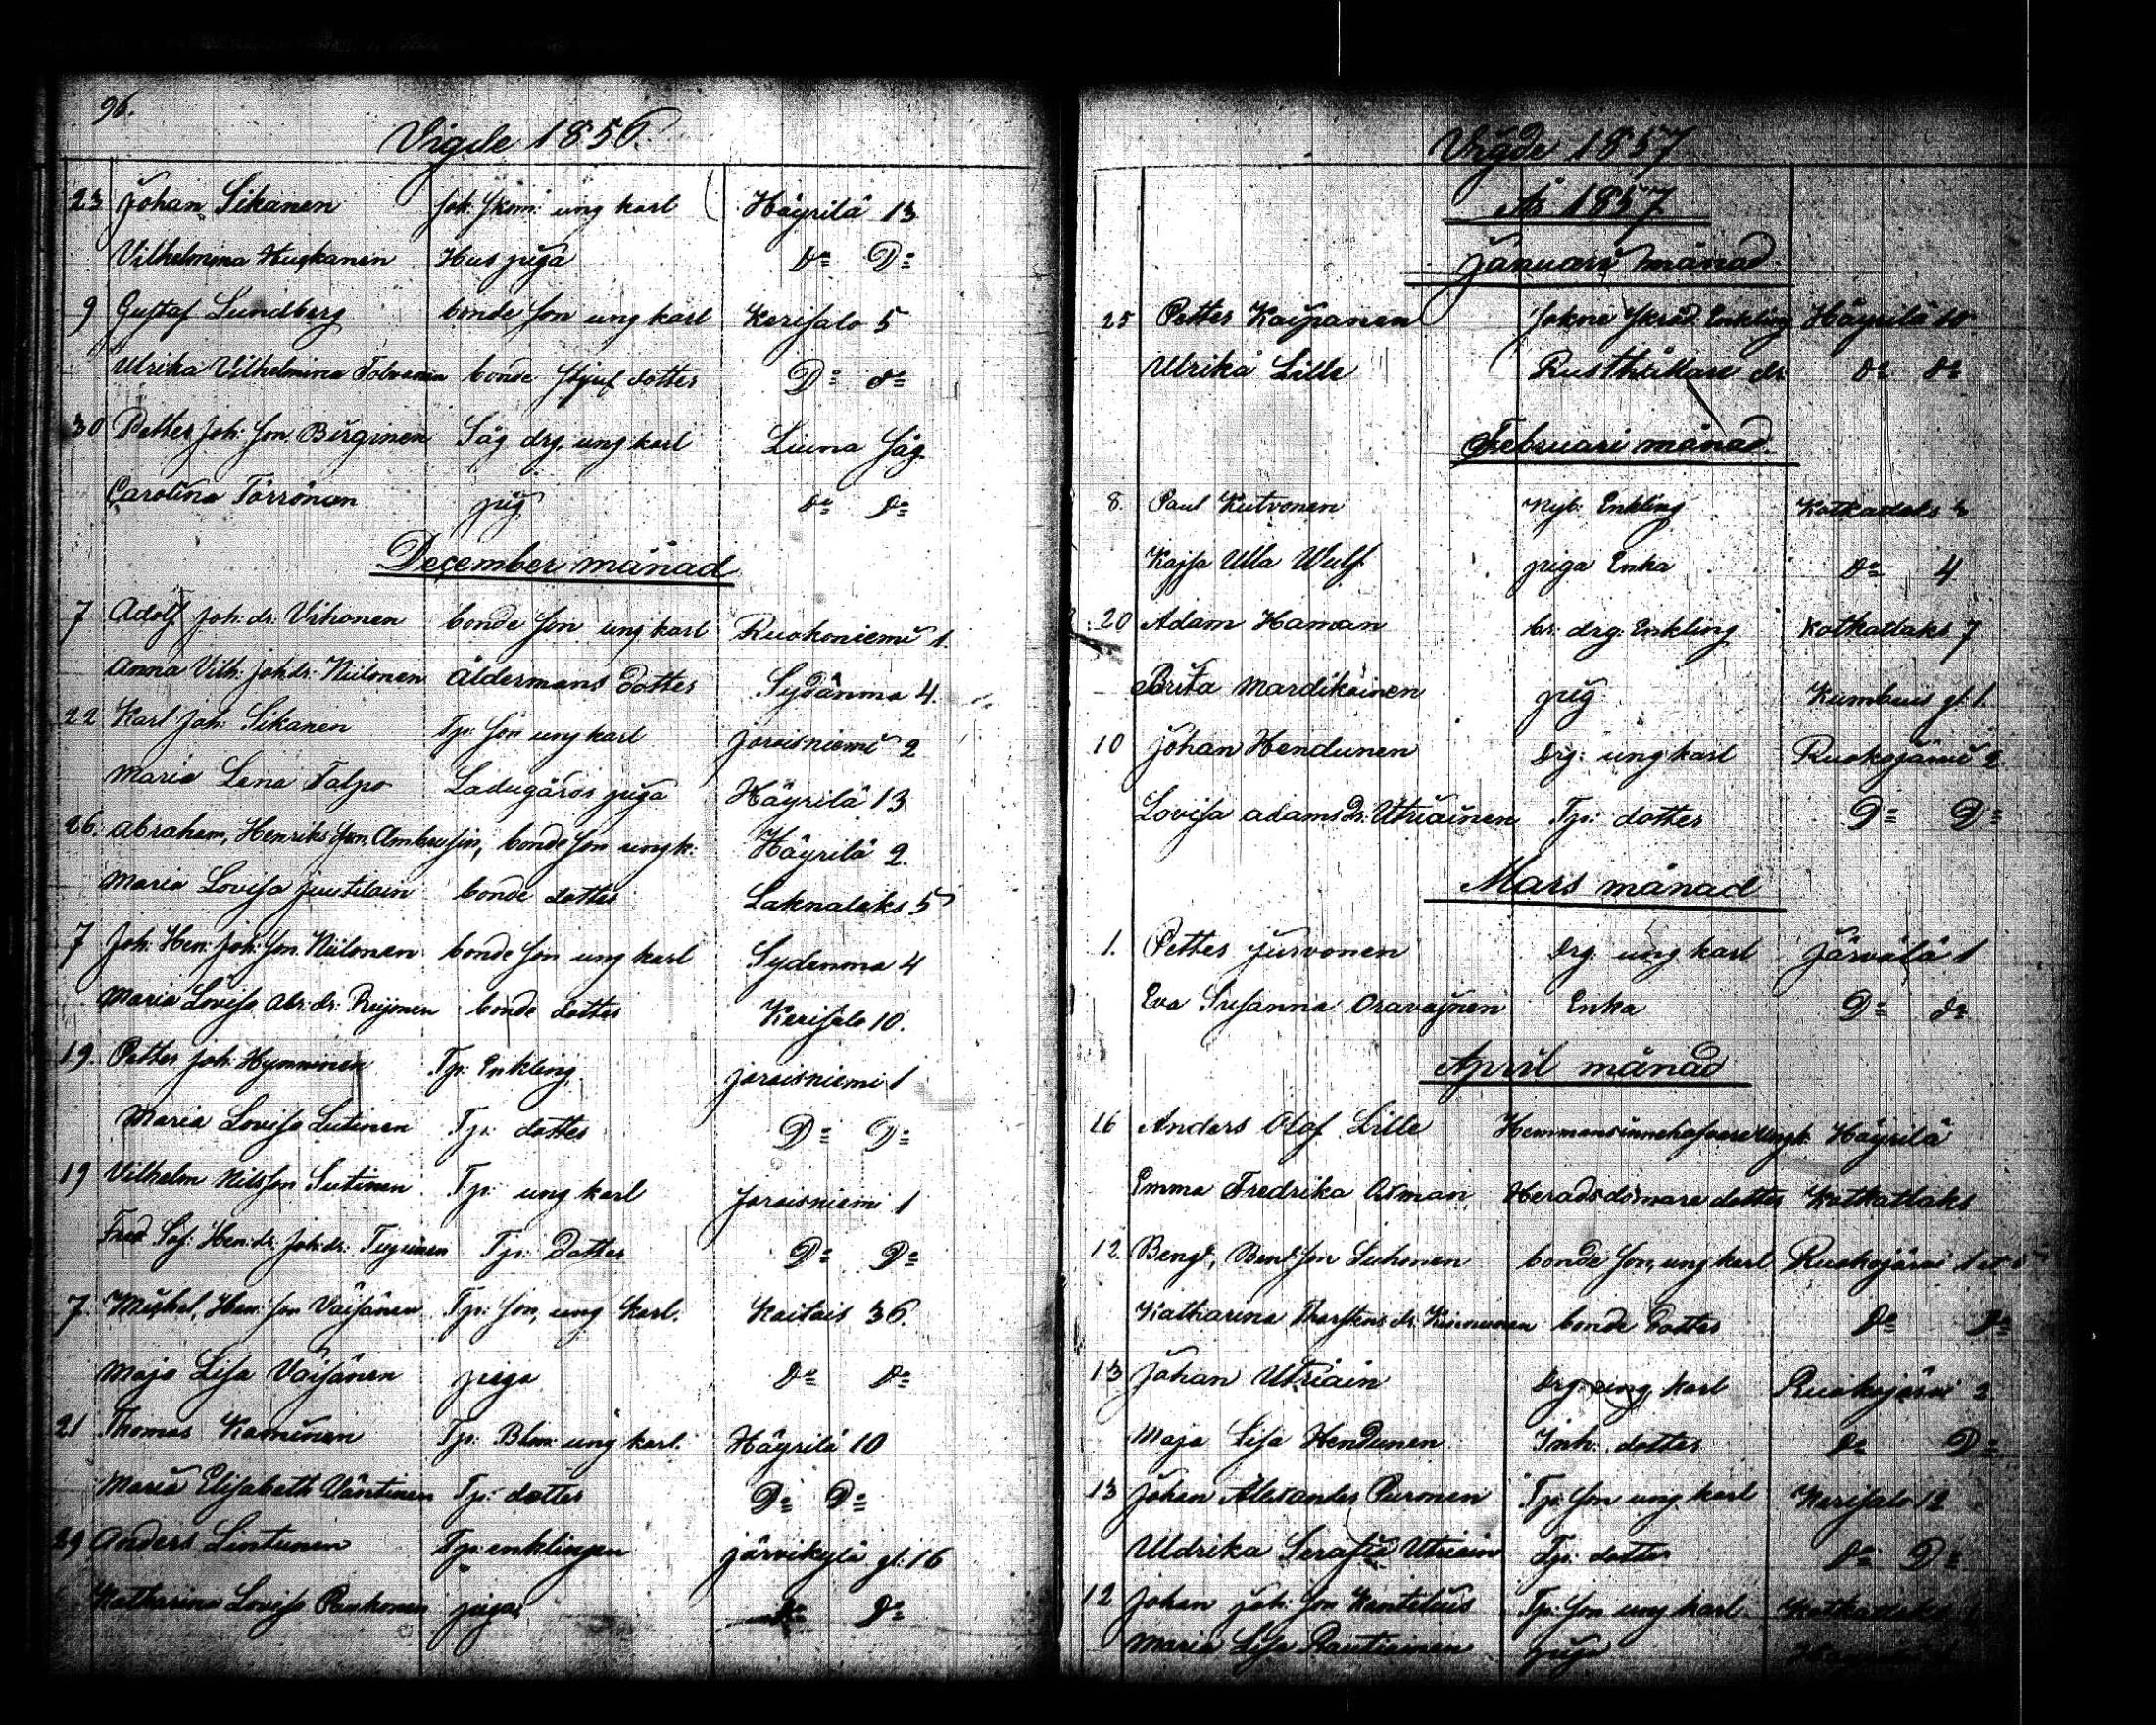 96.
Vigde 1856.
23 Johan Sikanen ung karl Häyrilä 13
Vilhelmina Huskanen Hus piga Do Do
9 Gustaf Lundberg bonde son ung karl Kerisalo 5
Ulrika Vilhelmina Tolvanen bonde styuf dotter Do do
30 Petter Joh: son Birginen Såg drg. ung karl Liuna såg
Carolina Törrönen pig do do
December månad
7 Adolf Joh: dr: Vihonen bonde son ung karl Ruokoniemi 1.
Anna Vilh: Joh dr: Niilonen Åldermans Dotter Sydänma 4.
22 Karl Joh: Sikanen Tp: son ung karl Joroisniemi 2
Maria Lena Talpo Ladugårds piga Häyrilä 13
26. Abraham, Henriks son, bonde son ung k: Häyrilä 2.
Maria Lovisa Juutilain bonde dotter Laknalaks 5
7 Joh: Hen: Joh: son Niilonen bonde son ung karl Sydenma 4
Maria Lovisa Abr: dr: bonde dotter Kerisalo 10.
19. Petter Joh: Hynninen Tp: Enkling Joroisniemi 1
Maria Lovisa Sutinen Tp: dotter Do Do
19 Vilhelm Nilsson Sutinen Tp: ung karl Joroisniemi 1
Fred. Sof: Hen: dr: Joh: dr: Tp: Dotter Do Do
7. Mickel, Hen: son Väisänen Tp: son, ung karl. Kaitais 36.
Maja Lisa Väisänen piga do do
21 Thomas Kaminen Tp: Blm: ung karl. Häyrilä 10
Maria Elisabeth Väntinen Tp: dotter Do Do
29 Anders Lintunen Tp: enklingen Järvikylä gl: 16
Katharina Lovisa piga do do
Vigde 1857
År 1857
Januari månad
25 Petter Kaipanen Enkling Häyrilä 10
Ulrika Lille Rusthållare dr do do
Februari månad
8. Paul Kutvonen Nyb: Enkling
Kajsa Ulla Wulf piga Enka do 4
20 Adam Haman br: drg: Enkling Kotkatlaks 7
Brita Mardikainen pig Kumbuis gl 1.
10 Johan Hendunen Drg: ung karl Ruokojärvi 2
Lovisa Adams dr: Utriainen Tp: dotter Do Do
Mars månad
1. Petter Jurvonen Drg. ung karl Järvälä 1
Eva Susanna Oravainen Enka Do do
April månad
16 Anders Olof Lille Hemmansinnehafvare Häyrilä
Emma Fredrika Heradsdömare dotter Kotkatlaks
12 Bengt, Bent son Suhonen bonde son, ung karl Ruokojärvi 1
Katharina Thorstens dr: Kinnunen bonde Dotter do do
13 Johan Utriain Drg: ung karl Ruokojärvi 2
Maja Lisa Hendunen Inh: dotter do Do
13 Johan Alexander Puronen Tp: son ung karl Kerisalo 12
Uldrika Serafia Utriain Tp: dotter do Do
12 Johan Joh: son Kantelius Tp: son ung karl Kotkatlaks
Maria Lisa Rautiainen piga